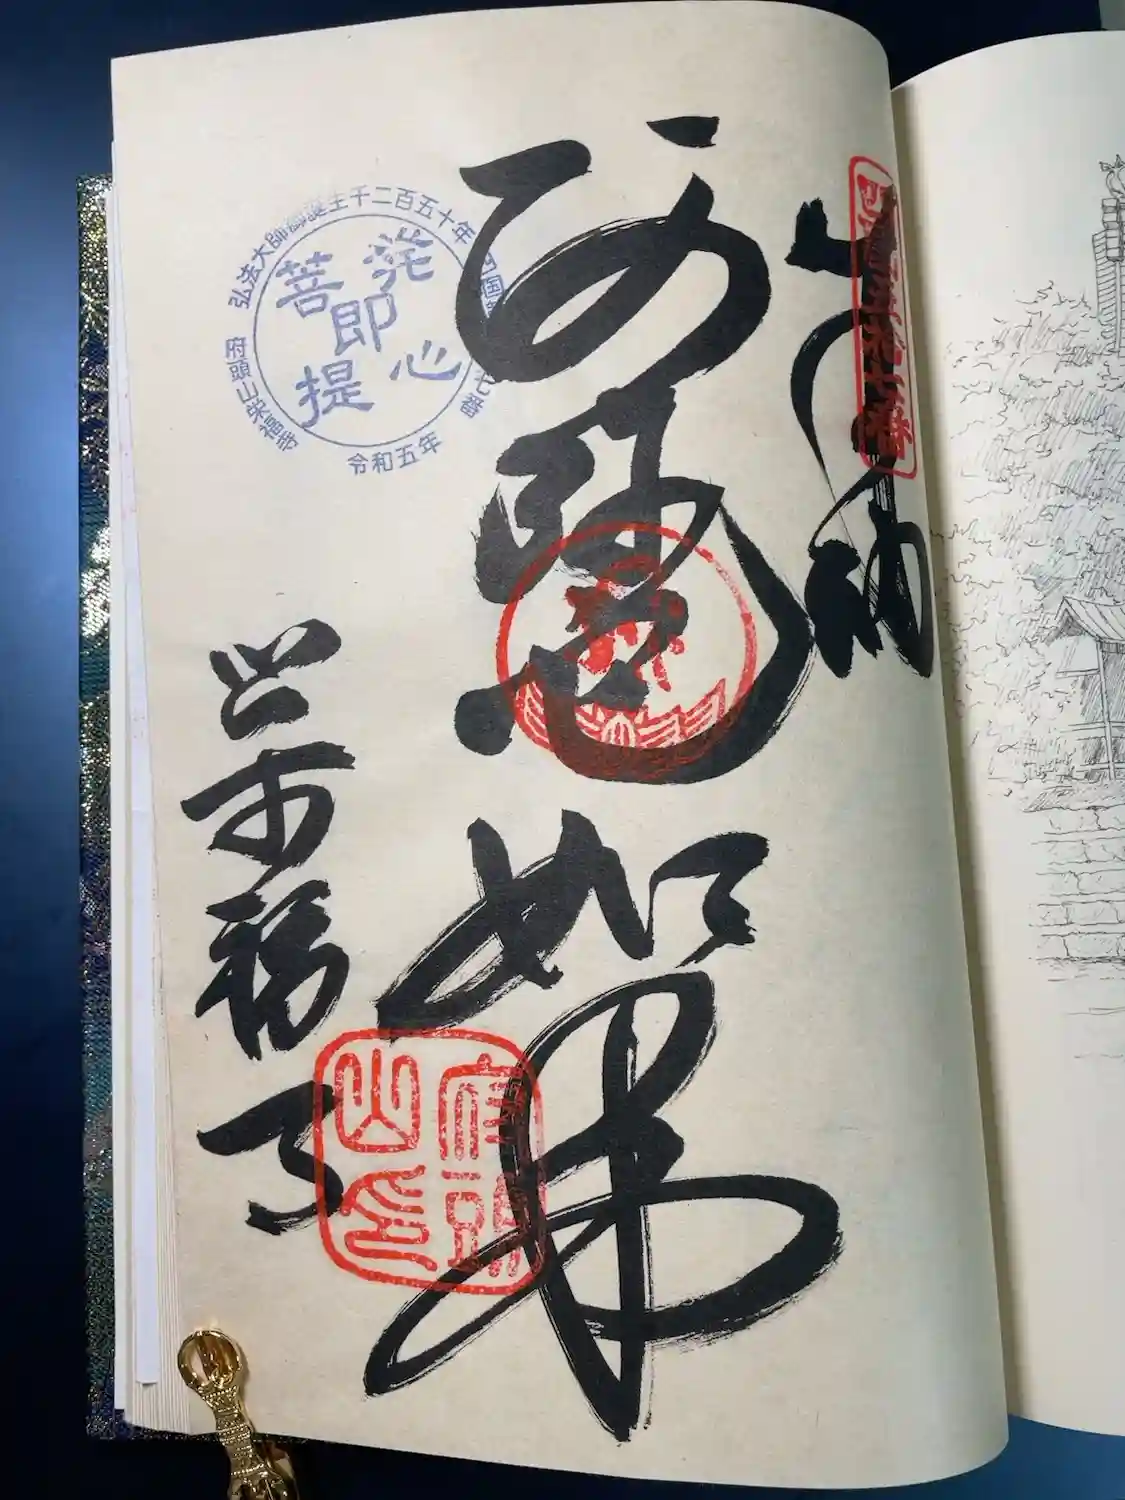 奉納
四国第五十七番
阿弥陀如来
栄福寺
府頭山印
弘法大師御誕生千二百五十年
四国 七番
発心即菩提
令和五年
府頭山栄福寺